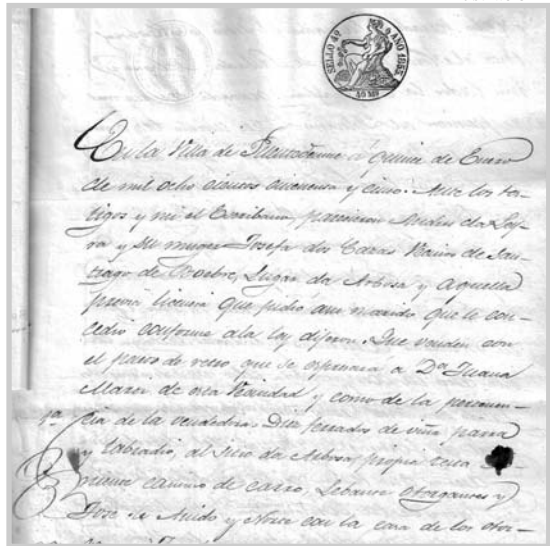 SELLO 4º AÑO 1855.
40 Ms
En la Villa de Puentedeume á quince de Enero
de mil ocho cientos cincuenta y cinco: Ante los tes-
tigos y mi el Escribano, parecieron Andres da Ley-
ra y su muger Josefa dos Casas Vecinos de San-
tiago de Boebre, Lugar da Arbosa y aquella
previa licencia que pidió asu marido, que le con-
cedió conforme ala ley dijeron: Que venden con
el pacto de retro que se espresará a Dª Juana
de esta Vecindad y como de la pertenen-
1ª cia de la vendedora: Diez ferrados de viña parra
y labradío, al sitio da Arbosa, propia
camino de carro, Lebante otorgantes y
Jose de Anido y Norte con la casa de los otor-